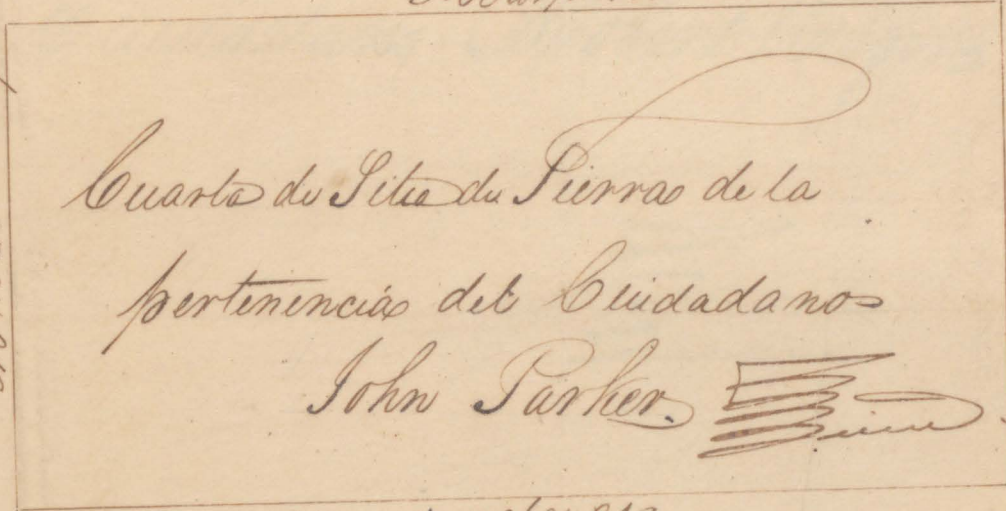 Cuarto de Sitio de Tierra de la
pertenencia del Ciudadano
John Parker